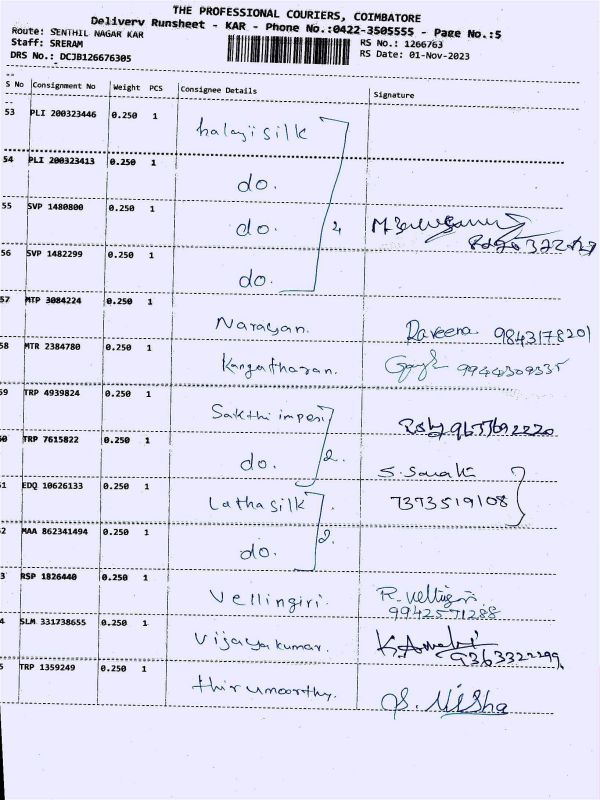 THE PROFESSIONAL COURIERS, COIMBATORE
Delivery Runsheet - KAR - Phone No.:0422-3505555 - Page No.:5
Route: SENTHIL NAGAR KAR
RS No.: 1266763
Staff: SRERAM
RS Date: 01-Nov-2023
DRS No.: DCJB126676305
S No Consignment No Weight PCS Consignee Details Signature
53 PLI 200323446 0.250 1 balaji silk
54 PLI 200323413 0.250 1 do.
55 SVP 1480800 0.250 1 do. 4
56 SVP 1482299 0.250 1 do.
57 MTP 3084224 0.250 1 Narayan. Raveena 9843178201
58 MTR 2384780 0.250 1 Kangatharan. 9944309335
59 TRP 4939824 0.250 1 Sakthi impex 9677692220
60 TRP 7615822 0.250 1 do. 2.
61 EDQ 10626133 0.250 1 Latha silk 7373519108
62 MAA 862341494 0.250 1 do. 2.
3 RSP 1826440 0.250 1 Vellingiri. R. Vellingiri
9942571288
4 SLM 331738655 0.250 1 Vijayakumar. 9363322299
5 TRP 1359249 0.250 1 thirumoorthy. S. Nisha